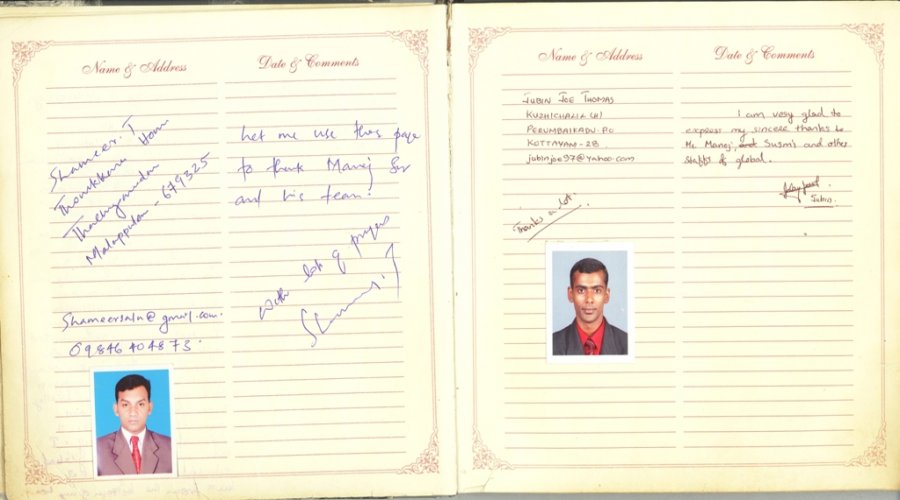 Name & Address
Shameer. T
Home
Malappuram - 679325
Shameersaln@gmail.com.
09846404873.
Date & Comments
Let me use this page
to thank Manoj Sir
and his team.
with lots of prayers
Name & Address
JUBIN JOE THOMAS
KUZHICHALIL (H)
PERUMBAIKADU. PO
KOTTAYAM - 28.
jubinjoe97@yahoo.com
Thanks a lot.
Date & Comments
I am very glad to
express my sincere thanks to
Mr. Manoj, Susmi and other
staffs of global.
Jubin.